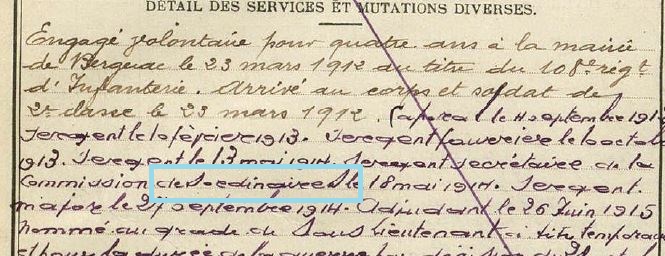 DÉTAIL DES SERVICES ET MUTATIONS DIVERSES.
Engagé volontaire pour quatre ans à la mairie
de Bergerac le 23 mars 1912 au titre du 108e régt
d'Infanterie. Arrivé au corps et soldat de
2e classe le 23 mars 1912. Caporal le septembre 191
Sergent le 10 février 1913. Sergent fourrier le octob
1913. Sergent le 13 mai 1914. Sergent secrétaire de la
Commission de le 18 mai 1914. Sergent
major le 27 septembre 1914. Adjudant le 26 Juin 1915
nommé au grade de Sous Lieutenant à titre temporai
et pour la durée de la guerre par décision du